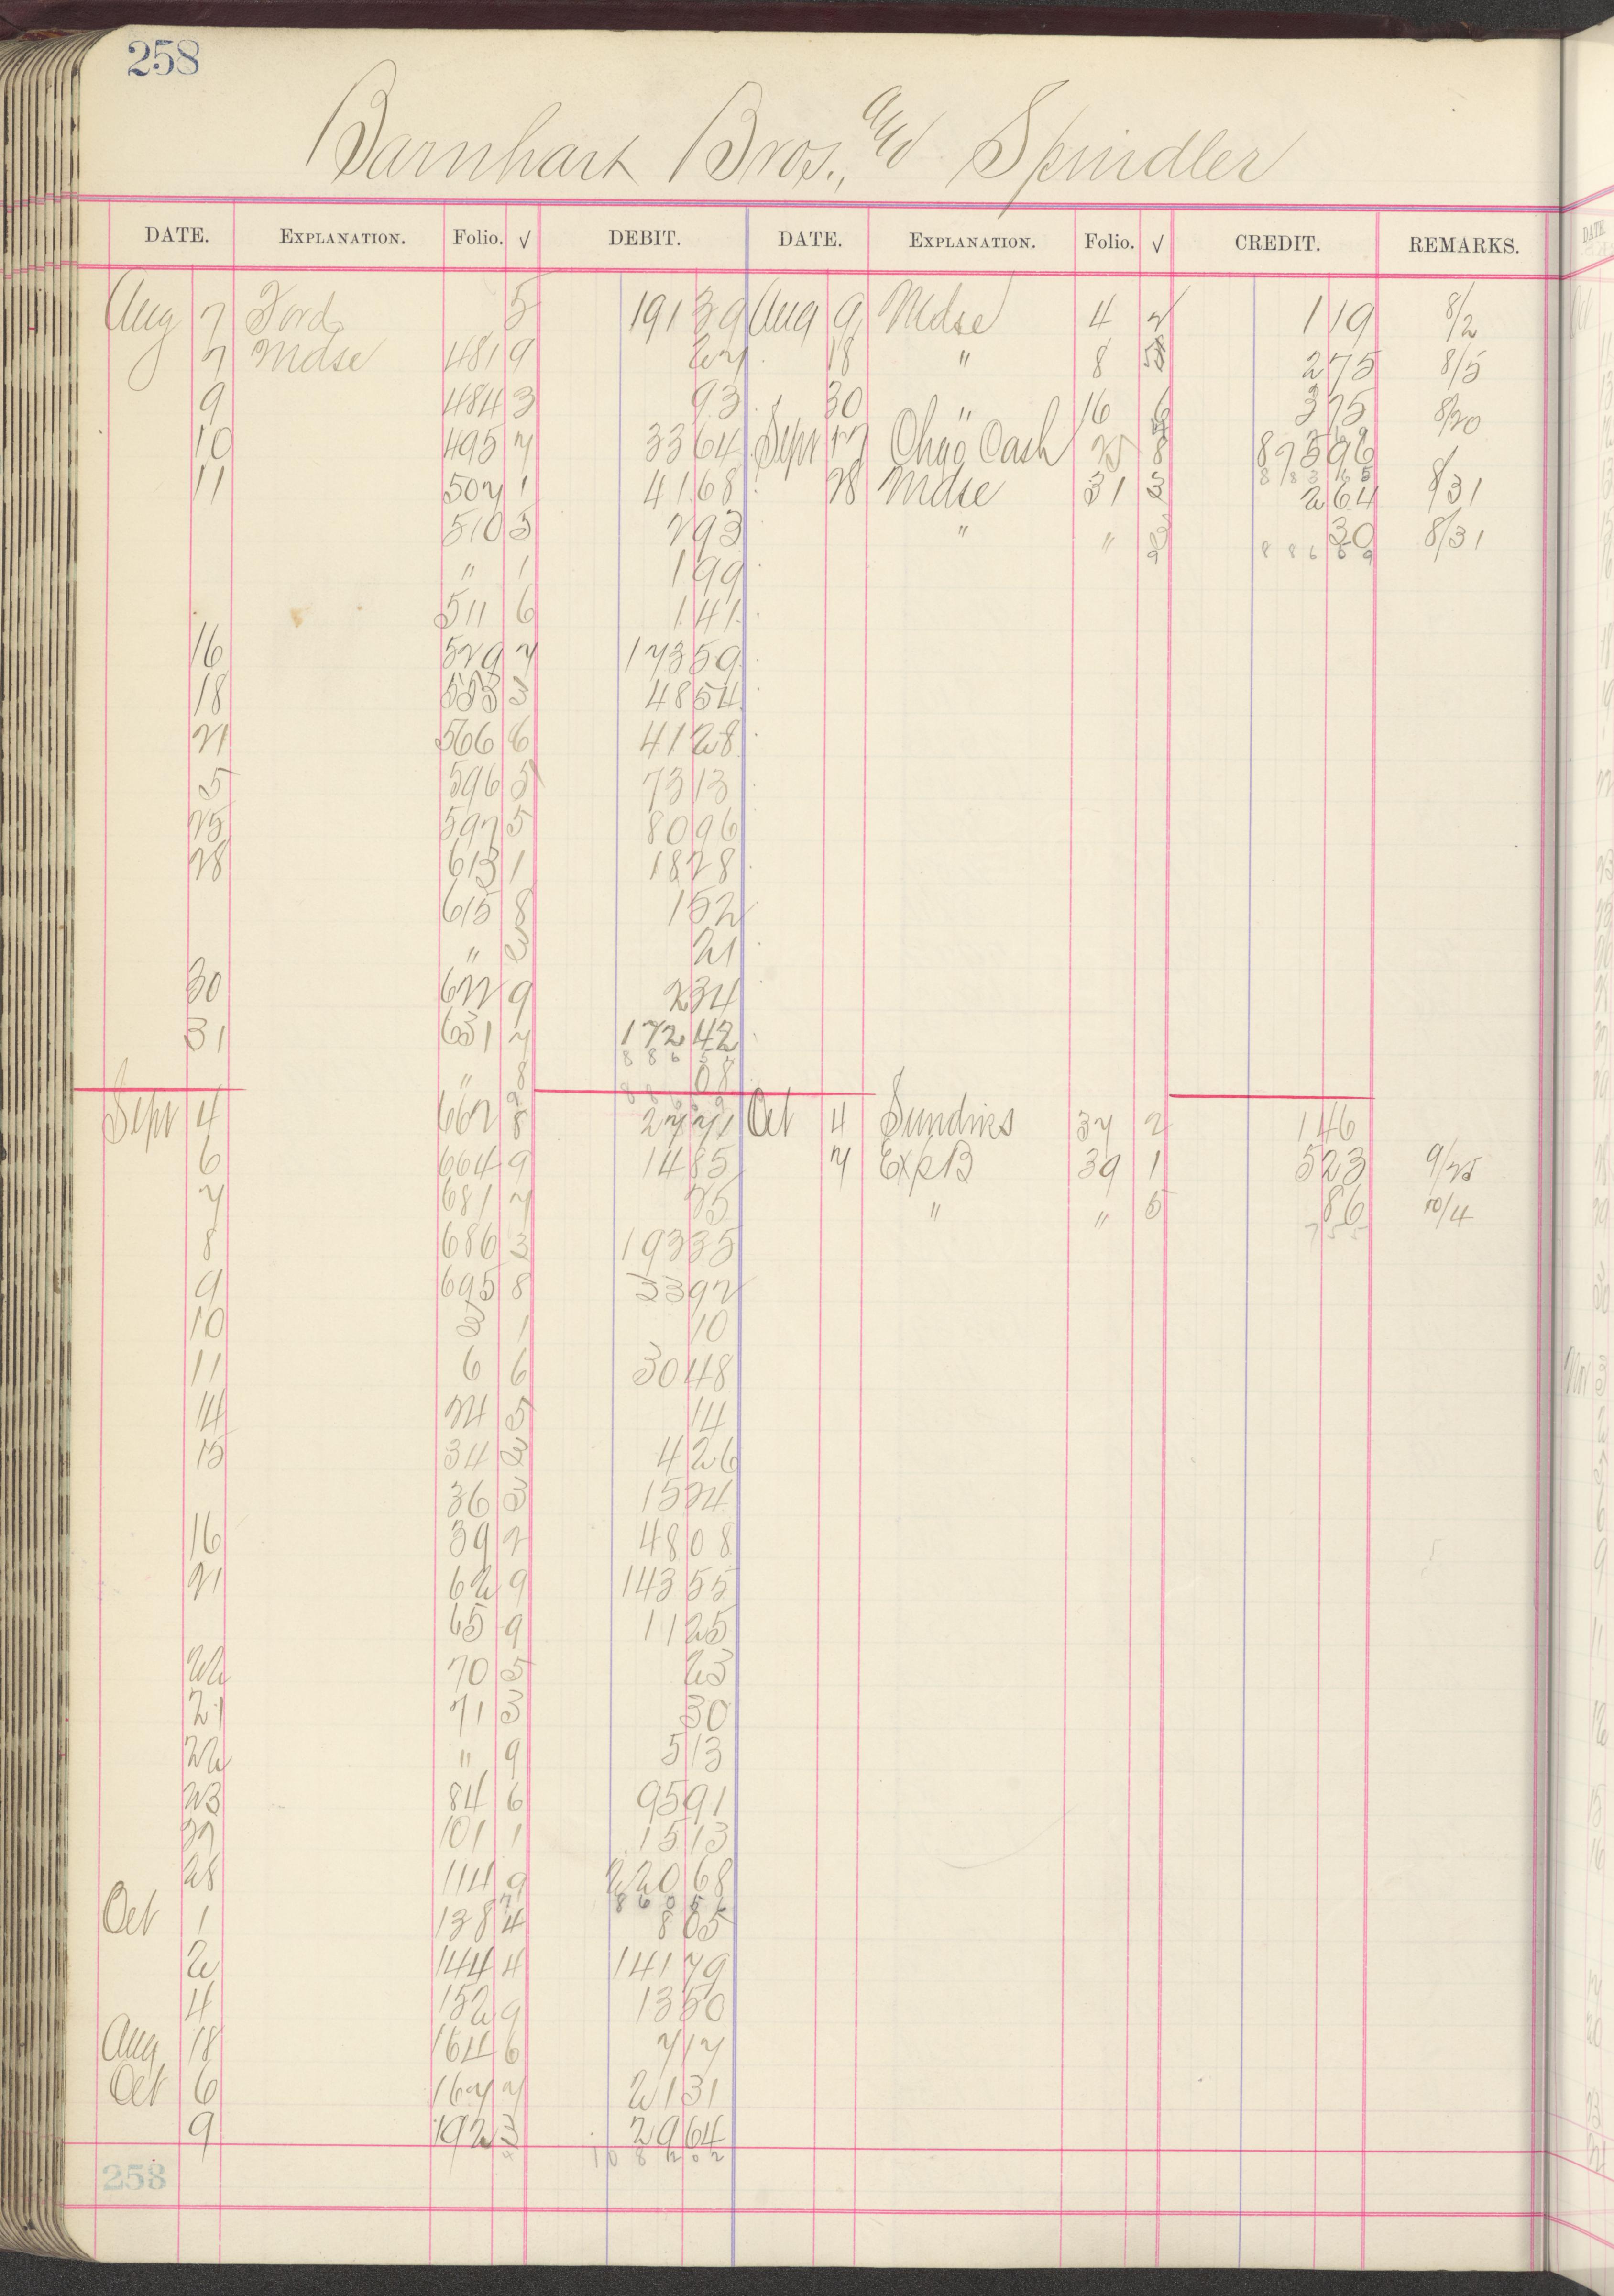 258
Barnhart Bros., and Spindler
DATE. EXPLANATION. Folio. √ DEBIT. DATE. EXPLANATION. Folio. √ CREDIT. REMARKS.
Aug 7 Ford 5 191 39 Aug 9 Mdse 4 7 1 19 8/2
7 Mdse 481 9 27 18 " 8 275 8/5
9 484 3 93 30 " 16 6 375 8/20
10 495 7 33 64 Sept 17 Chgo Cash 25 8 875 96
11 507 1 41 68 28 Mdse 31 3 2 64 8/31
510 5 2 93 " " 30 8/31
" 1 1 99 8 8 6 5 9
511 6 1 41
16 529 7 173 59
18 553 3 48 54
21 566 6 41 28
5 596 5 73 13
25 597 5 80 96
28 613 1 18 28
615 8 1 52
" 3 21
30 622 9 2 34
31 631 7 172 42
" 8 08
Sept 4 662 8 27 71 Oct 4 Sundries 37 2 1 46
6 664 9 14 85 7 Exp B 39 1 5 23 9/25
7 681 7 25 " " 5 86 10/4
8 686 3 193 35 7 5 5
9 695 8 33 92
10 3 1 10
11 6 6 30 48
14 24 5 14
15 34 3 4 26
36 3 15 24
16 39 2 48 08
21 62 9 143 55
65 9 11 25
22 70 5 23
21 71 3 30
22 " 9 5 13
23 84 6 95 91
27 101 1 15 13
28 114 9 220 68
Oct 1 138 4 8 65
2 144 4 141 79
4 152 9 13 50
Aug 18 164 6 7 17
Oct 6 167 7 21 31
9 192 3 29 64
258